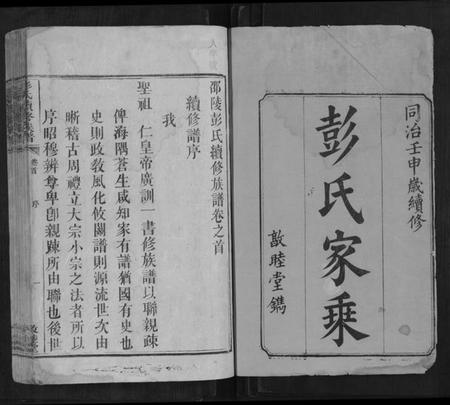 同治壬申歲續修
彭氏家乘
敦睦堂鐫
邵陵彭氏續修族譜卷之首
續修譜序
我
聖祖 仁皇帝廣訓一書修族譜以聯親疎
俾海隅蒼生咸知家有譜猶國有史也
史則政教風化攸關譜則源流世次由
晰稽古周禮立大宗小宗之法者所以
序昭穆辨尊卑卽親疎所由聯也後世
卷首 序 一